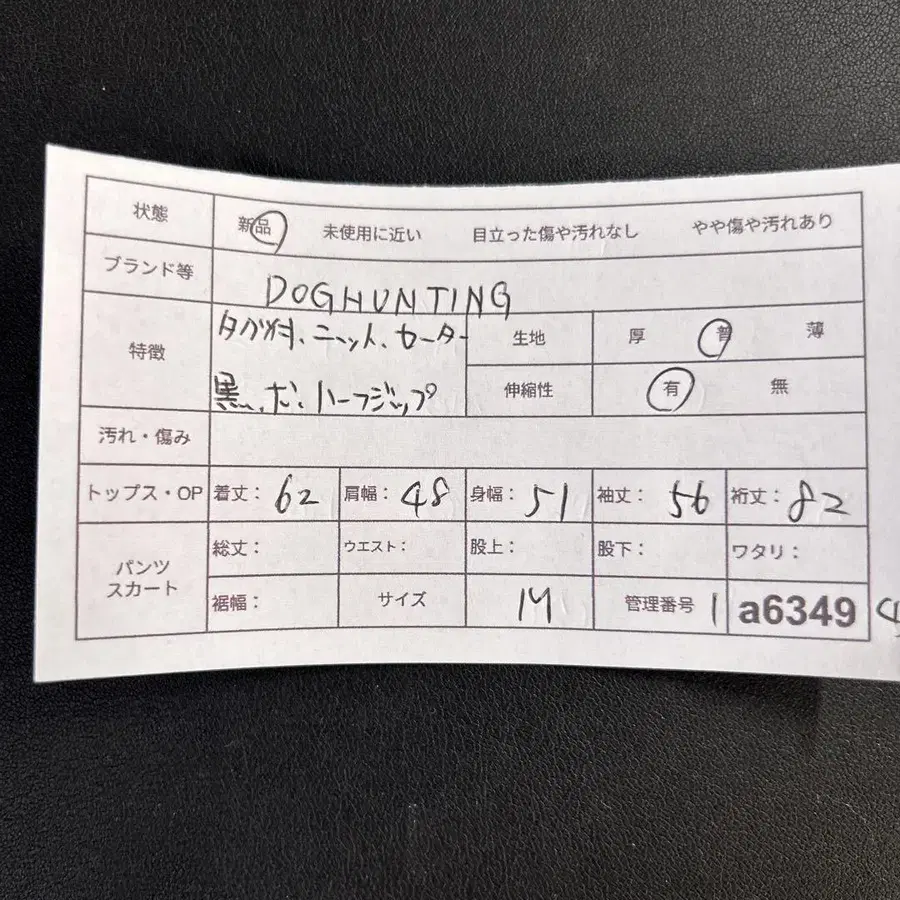 状態 新品 未使用に近い 目立った傷や汚れなし やや傷や汚れあり
ブランド等 DOGHUNTING
特徴 タグ付、ニット、セーター 生地 厚 普 薄
黒、ハーフジップ 伸縮性 有 無
汚れ・傷み
トップス・OP 着丈: 62 肩幅: 48 身幅: 51 袖丈: 56 裄丈: 82
パンツ スカート 総丈: ウエスト: 股上: 股下: ワタリ:
裾幅: サイズ M 管理番号 1 a6349